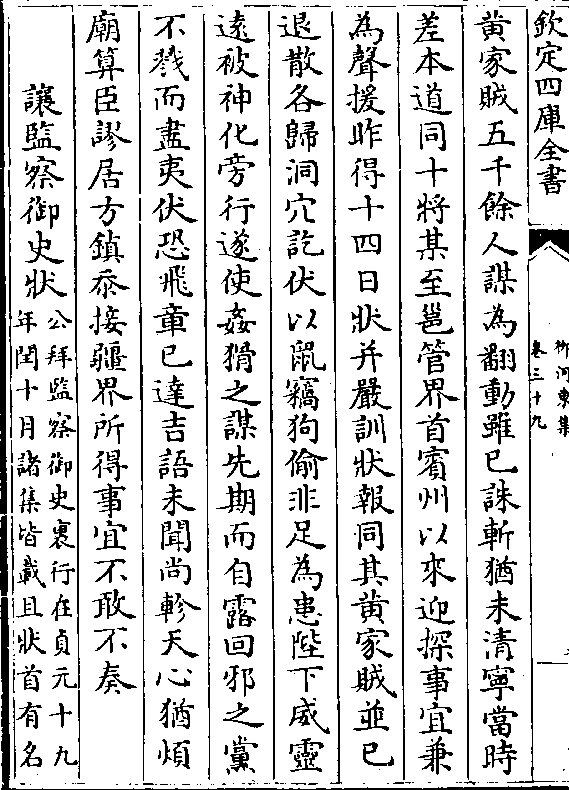 欽定四庫全書
柳河東集
卷三十九
黄家賊五千餘人謀為翻動雖已誅斬猶未清寧當時
差本道同十將某至邕管界首賓州以來迎探事宜兼
為聲援昨得十四日狀并嚴訓狀報同其黄家賊並已
退散各歸洞穴訖伏以鼠竊狗偷非足為患陛下威靈
遠被神化旁行遂使姦猾之謀先期而自露回邪之黨
不戮而盡夷伏恐飛章已達吉語未聞尚軫天心猶煩
廟算臣謬居方鎮忝接疆界所得事宜不敢不奏
讓監察御史狀
公拜監察御史裏行在貞元十九
年閏十月諸集皆載且狀首有名